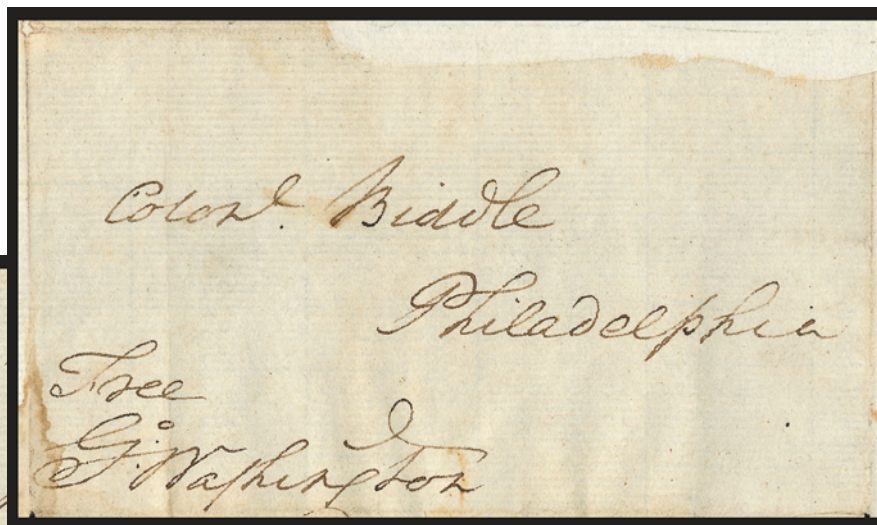 Colonl. Biddle
Philadelphia
Free
Go: Washington